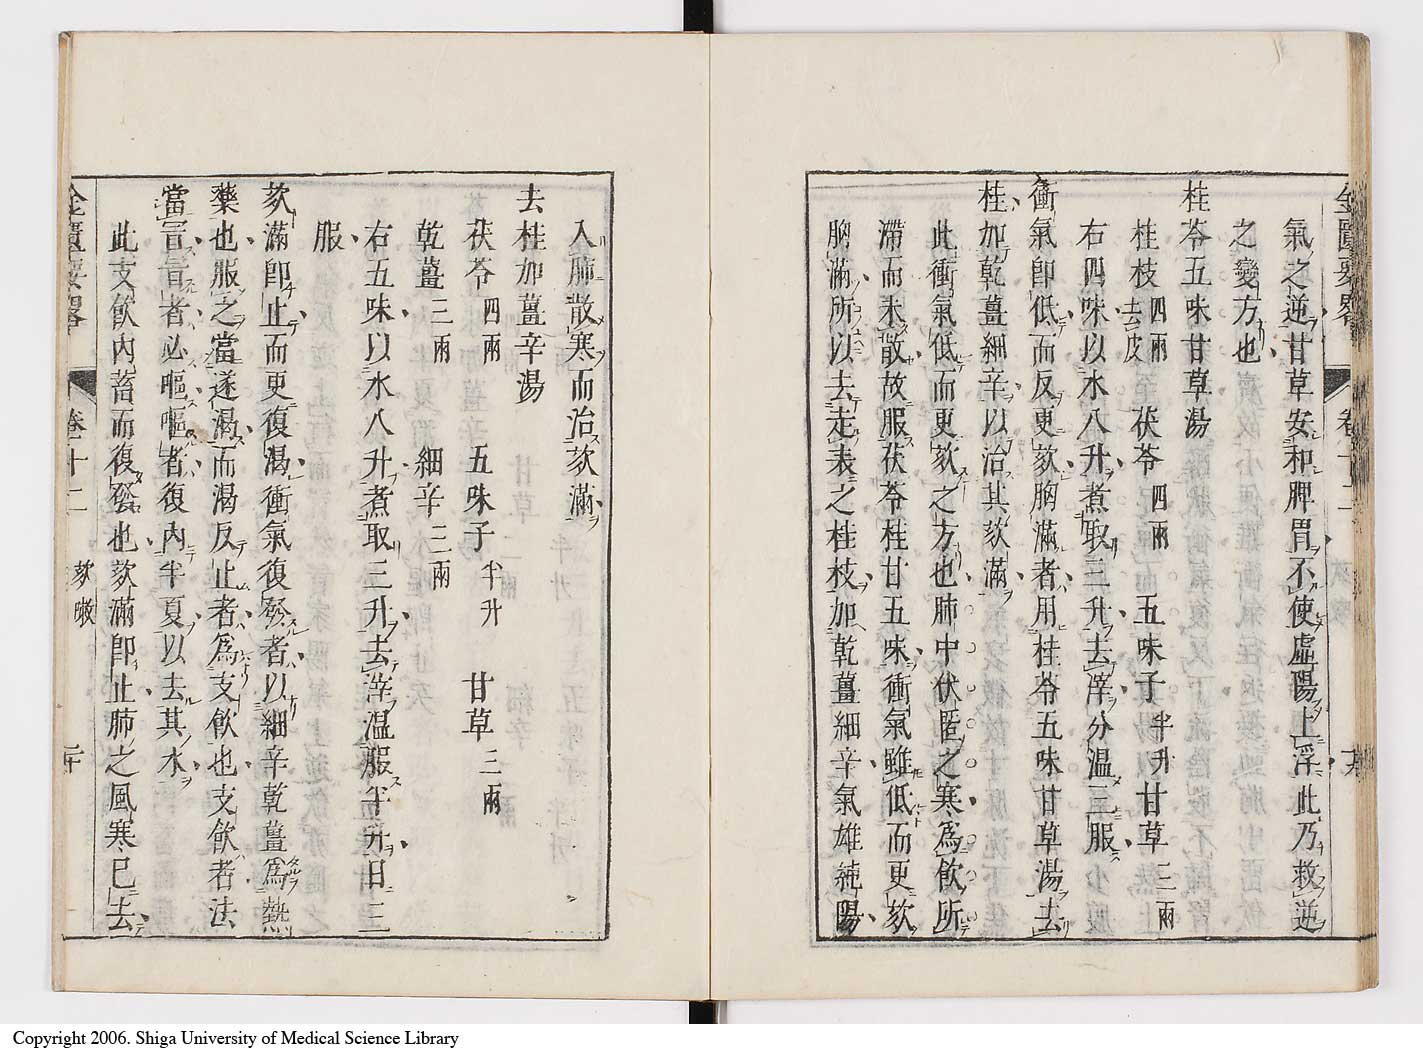 氣之逆甘草安和脾胃不使虛陽上浮此乃救逆
之變方也
桂苓五味甘草湯
桂枝四兩去皮 茯苓四兩 五味子半升 甘草三兩
右四味以水八升煮取三升去滓分溫服
衝氣卽低而反更欬胸滿者用桂苓五味甘草湯去
桂加乾薑細辛以治其欬滿
此衝氣低而更欬之方也肺中伏匿之寒爲飮所
滯而未散故服茯苓桂甘五味衝氣雖低而更欬
胸滿所以去走表之桂枝加乾薑細辛氣雄純陽
金匱要略 卷十二 欬嗽 二十
入肺散寒而治欬滿
去桂加薑辛湯
茯苓四兩 五味子半升 甘草三兩
乾薑三兩 細辛三兩
右五味以水八升煮取三升去滓溫服半升日三
服
欬滿卽止而更復渴衝氣復發者以細辛乾薑爲熱
藥也服之當遂渴而渴反止者爲支飮也支飮者法
當冒冒者必嘔嘔者復內半夏以去其水
此支飮內蓄而復發也欬滿卽止肺之風寒已去
Copyright 2006. Shiga University of Medical Science Library